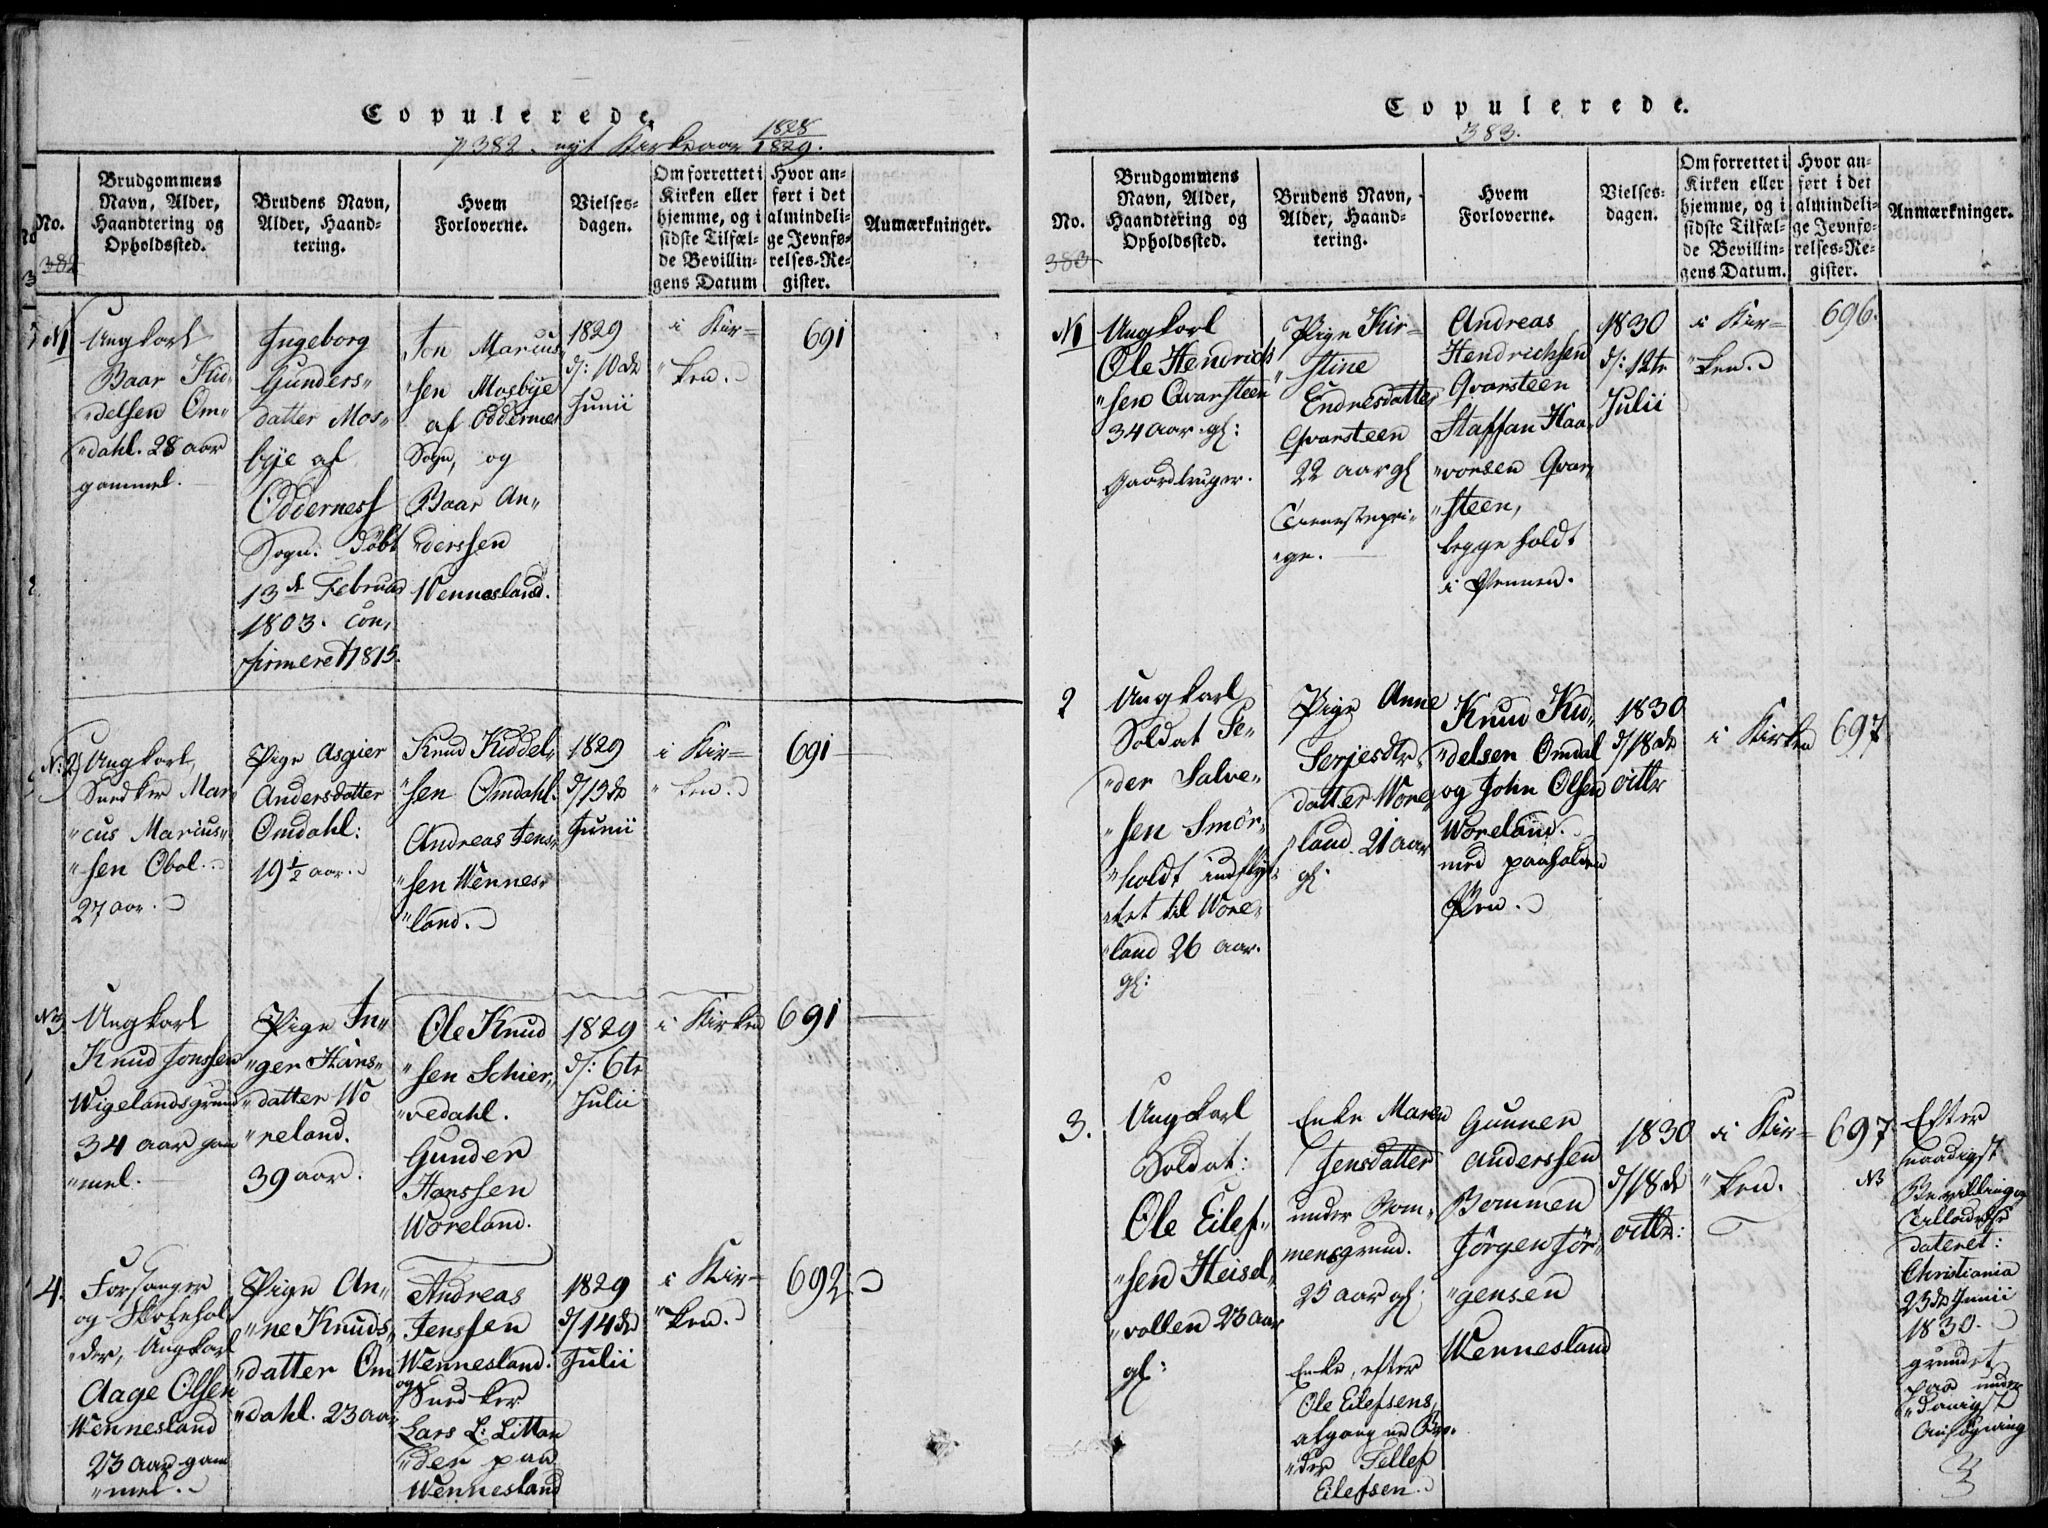 Copulerede.
382. nyt Kirkeaar 1828/1829.
No.
382
Brudgommens
Navn, Alder,
Haandtering og
Opholdssted.
Brudens Navn,
Alder, Haand-
tering.
Hvem
Forloverne.
Vielses-
dagen.
Om forrettet i
Kirken eller
hjemme, og i
sidste Tilfæl-
de Bevillin-
gens Datum
Hvor an-
ført i det
almindeli-
ge Jevnfø-
relses-Re-
gister.
Anmærkninger.
N1
Ungkarl
Baar Kid-
"delsen Om-
"dahl. 28 aar
gammel.
Ingeborg
Gunders-
datter Mos-
bye af
Odderness
Sogn. Døbt
13de Februar
1803. Con-
firmeret 1815.
Jon Marcus-
"sen Mosbye
af Oddernes
Sogn, og
Baar An-
"derssen
Wennesland.
1829
d: 10de
Junii
i Kir-
"ken.
691
N:2
Ungkarl,
Snedker Mar-
"cus Marius-
"sen Obel.
27 aar.
Pige Asgier
Andersdatter
Omdahl:
19 1/2 aar.
Knud Kiddel-
"sen Omdahl.
Andreas Jens-
"sen Wennes-
"land.
1829
d/13de
Junii
i Kir-
"ken.
691
N3
Ungkarl
Knud Jonssen
Wigelandsgrund
34 aar gam
"mel.
Pige In-
"ger Hans-
"datter Wo
"reland.
39 aar.
Ole Knud
"sen Schier-
"vedahl.
Gunder
Hanssen
Woreland.
1829
d: 6te
Julii
i Kirken
691
4.
Forsanger
og Skolehol-
"der, Ungkarl
Aage Olsen
Wennesland
23 aar gam
"mel.
Pige An-
"ne Knuds-
"datter Om
"dahl. 23 aar
Andreas
Jenssen
Wennesland.
og Snedker
Lars L: Littan
"der paa
Wennesland
1829
d/14de
Julii
i Kir-
"ken.
692
Copulerede.
383.
No.
383
Brudgommens
Navn, Alder,
Haandtering og
Opholdssted.
Brudens Navn,
Alder, Haand-
tering.
Hvem
Forloverne.
Vielses-
dagen.
Om forrettet i
Kirken eller
hjemme, og i
sidste Tilfæl-
de Bevillin-
gens Datum.
Hvor an-
ført i det
almindeli-
ge Jevnfø-
relses-Re-
gister.
Anmærkninger.
N1
Ungkarl
Ole Hendrich
"sen Qvarsteen
34 aar gl:
Gaardbruger.
Pige Kir-
"stine
Endresdatter
Qvarsteen
22 aar gl
Tienestepi-
"ge.
Andreas
Hendrichsen
Qvarsteen
Staffan Haa-
"vorsen Qvar-
"steen,
begge holdt
i Pennen.
1830
d: 12te
Julii
i Kir-
"ken.
696.
2
Ungkarl
Soldat Pe-
"der Salve-
"sen Smør-
"holdt indflyt-
"tet til Wore-
"land 26 aar.
gl:
Pige Anne
Terjesdtr.
datter Wore-
"land. 21 aar
gl.
Knud Kid-
"delsen Omdal
og John Olsen
Woreland.
med paaholden
Pen.
1830
d/18de
octbr
i Kirken
697
3.
Ungkarl
Soldat:
Ole Eilef-
"sen Heisel-
"vollen 23 aar
gl:
Enke Maren
Jensdatter
under Bom-
mensgrund.
25 aar gl.
Enke, efter
Ole Eilefsens,
afgangne Bro-
"der Tellef
Eilefsen.
Gunner
Anderssen
Bommen
Jørgen Jør-
"gensen
Wennesland
1830
d/18de
octbr:
i Kir-
"ken.
697
NB
Efter
naadigst
Bevilling og
Tilladelse
dateret:
Christiania
23de Junii
1830.
grundet
paa under
"danigst
Ansøgning